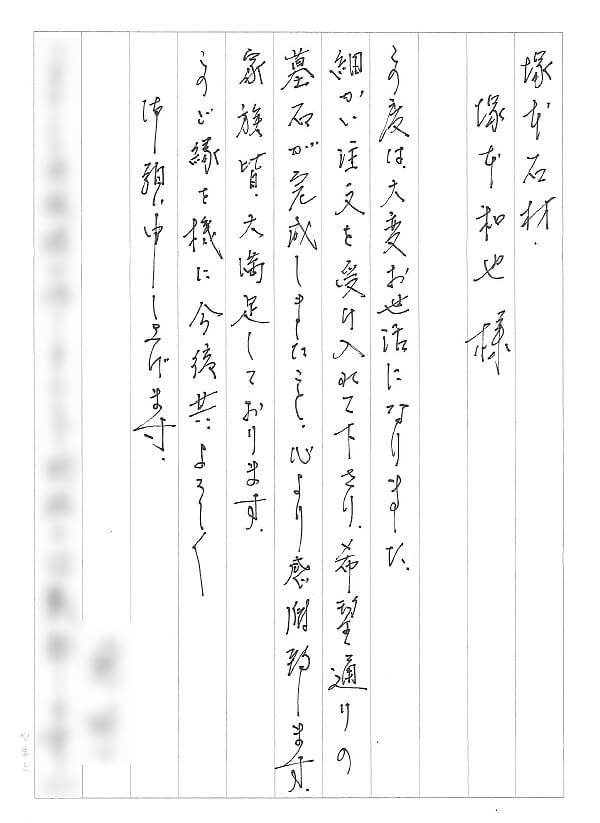 塚本石材.
塚本和也 様
この度は、大変お世話になりました.
細かい注文を受け入れて下さり、希望通りの
墓石が完成しましたこと、心より感謝致します.
家族皆、大満足しております.
このご縁を機に今後共、よろしく
御願い申し上げます.
やまと